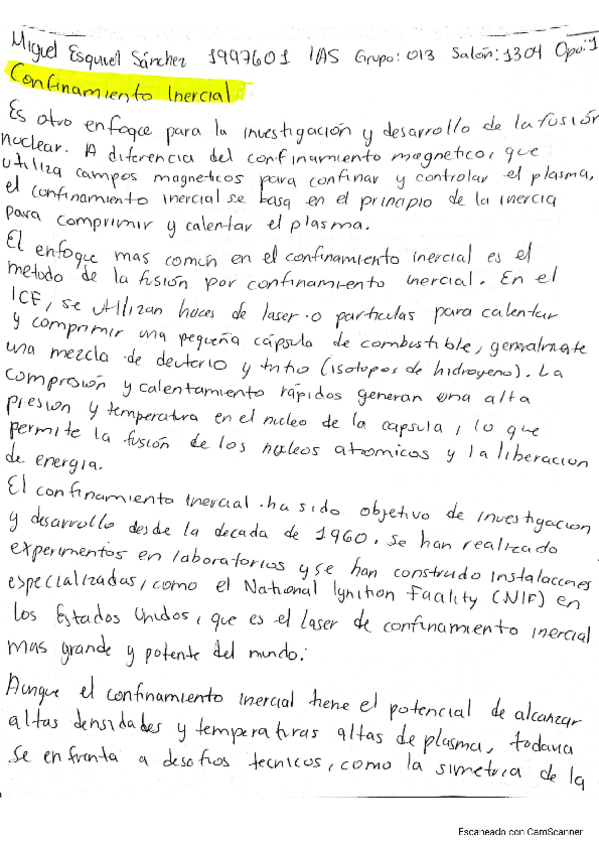 Miguel Esquivel Sánchez 1997601 IAS Grupo: 013 Salón: 1304 Opo: 1
Confinamiento Inercial
Es otro enfoque para la investigación y desarrollo de la fusión
nuclear. A diferencia del confinamiento magnetico, que
utiliza campos magneticos para confinar y controlar el plasma,
el confinamiento inercial se basa en el principio de la inercia
para comprimir y calentar el plasma.
El enfoque mas común en el confinamiento inercial es el
metodo de la fusión por confinamiento inercial. En el
ICF, se utilizan haces de laser o particulas para calentar
y comprimir una pequeña cápsula de combustible, generalmente
una mezcla de deuterio y tritio (isotopos de hidrogeno). La
compresión y calentamiento rápidos generan una alta
presion y temperatura en el nucleo de la capsula, lo que
permite la fusión de los nucleos atomicos y la liberacion
de energia.
El confinamiento inercial ha sido objetivo de investigacion
y desarrollo desde la decada de 1960. Se han realizado
experimentos en laboratorios y se han construido instalaciones
especializadas, como el National Ignition Facility (NIF) en
los Estados Unidos, que es el laser de confinamiento inercial
mas grande y potente del mundo.
Aunque el confinamiento inercial tiene el potencial de alcanzar
altas densidades y temperaturas altas de plasma, todavia
se enfrenta a desafios tecnicos, como la simetria de la
Escaneado con CamScanner